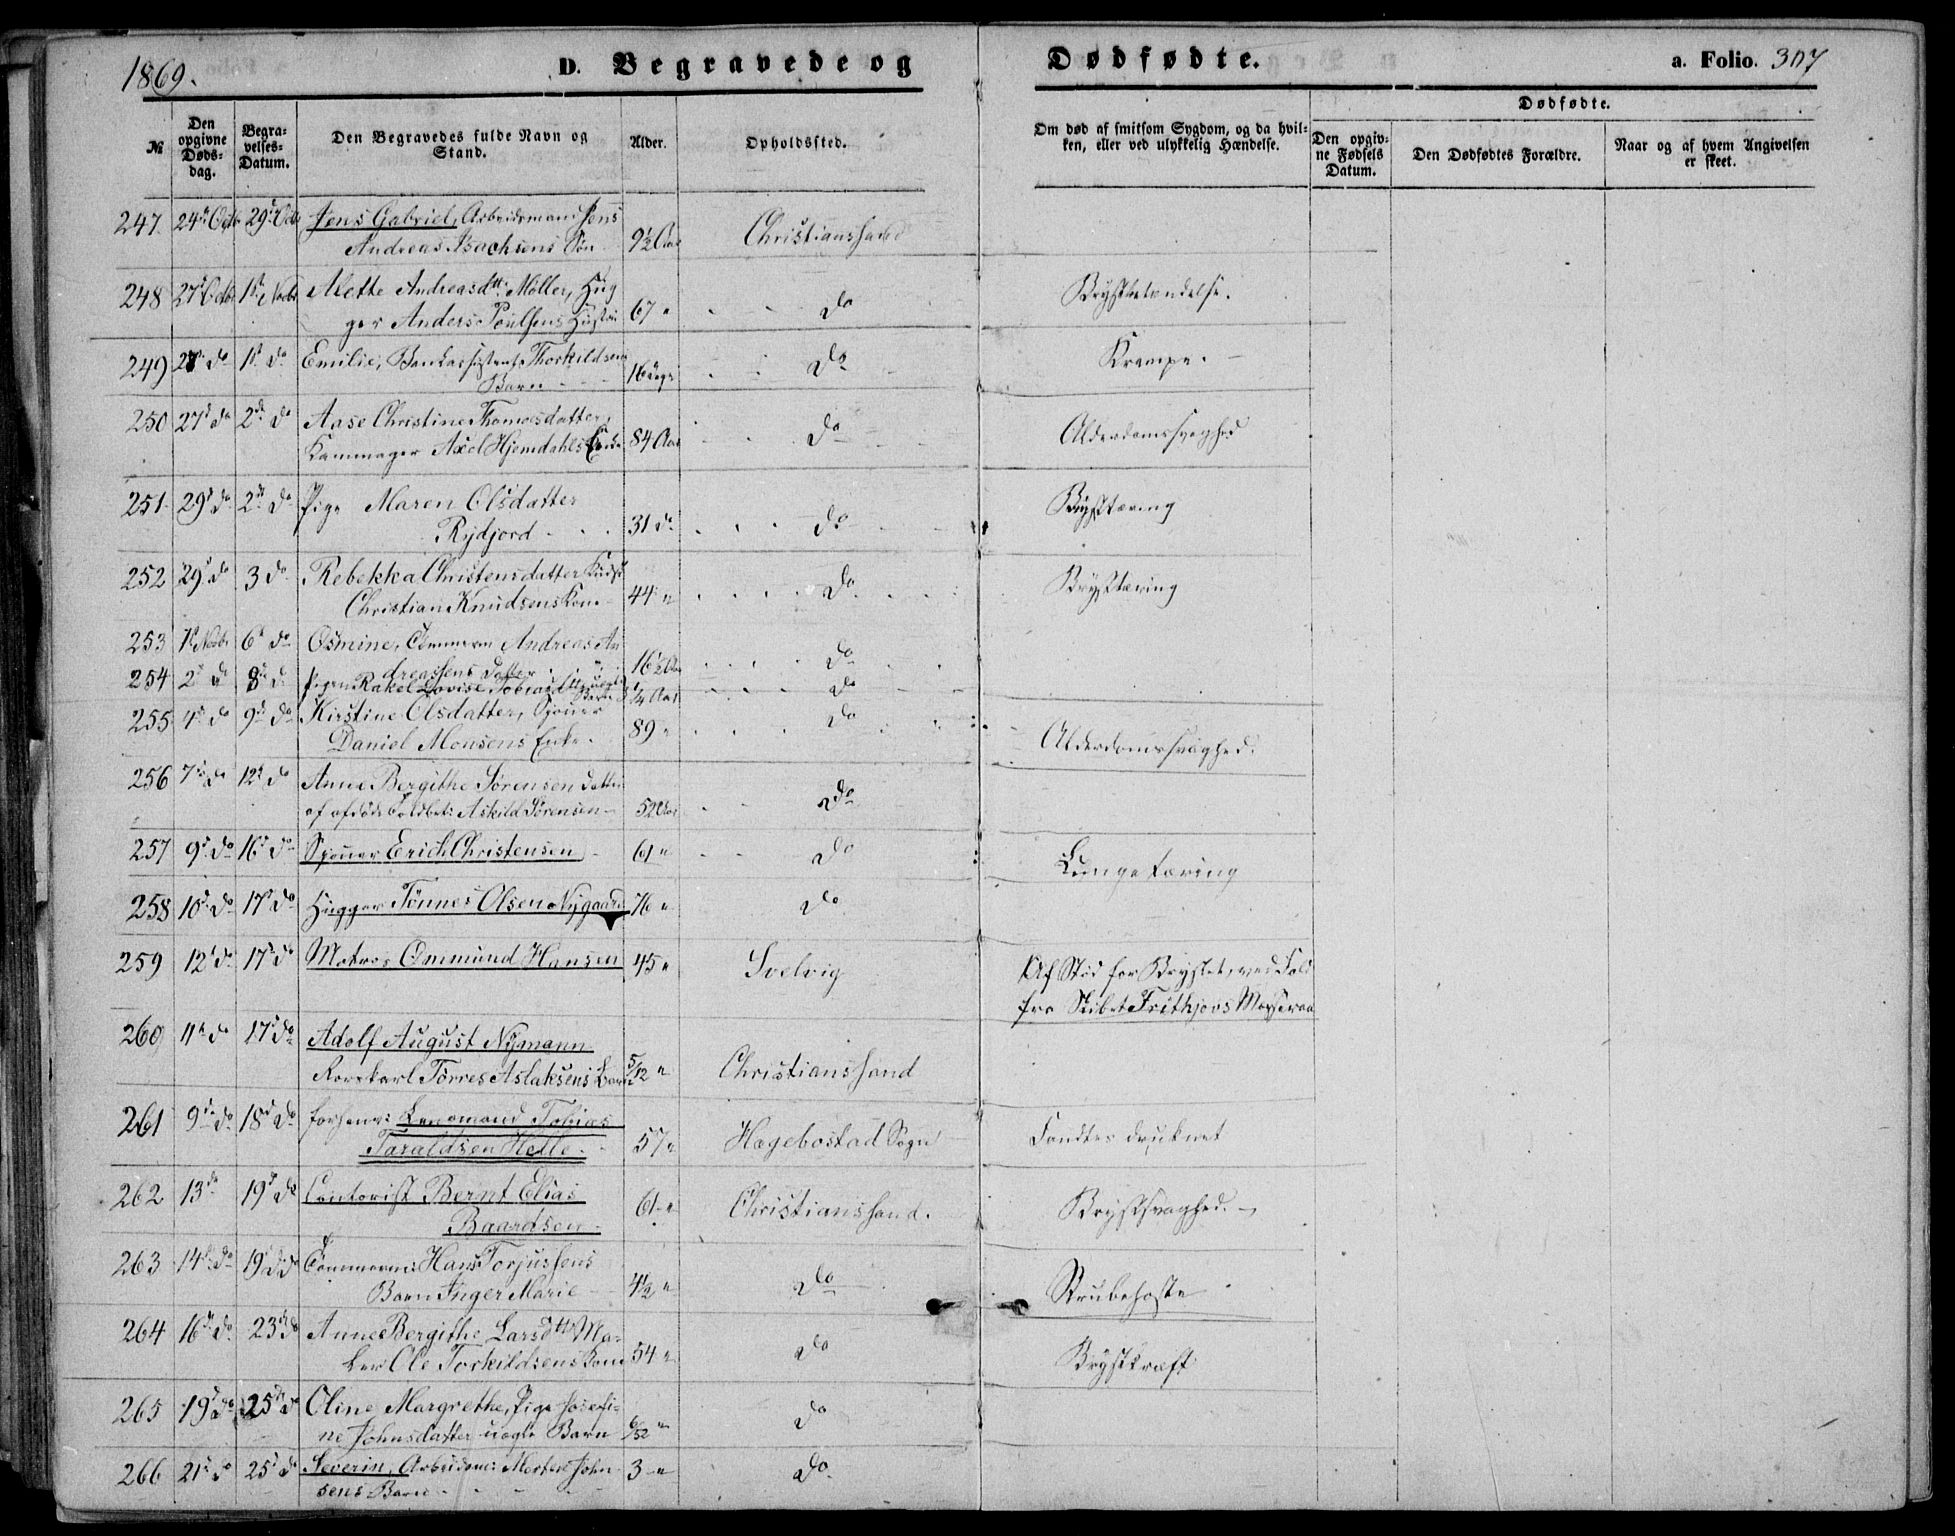 1869.
D. Begravede og Dødfødte.
a. Folio. 307
№
Den opgivne Døds-dag.
Begra-velses-Datum.
Den Begravedes fulde Navn og Stand.
Alder.
Opholdssted.
Om død af smitsom Sygdom, og da hvil-ken, eller ved ulykkelig Hændelse.
Dødfødte.
Den opgiv-ne Fødsels Datum.
Den Dødfødtes Forældre.
Naar og af hvem Angivelsen er skeet.
247 24d Octb 29d Octb Jens Gabriel, Arbeidsmand Jens
Andreas Isachsens Søn 9½ Aar Christianssand
248 27d Octb 1st Novbr Mette Andreasdtr: Møller, Hug
ger Anders Poulsens Hustru 67 " do Brystbetændelse.
249 27 do 1st do Emilie, Thorkildsens
Barn 16 Dage do Krampe.
250 27d do 2d do Aase Christine Thomasdatter,
Kammager Axel Hjemdahls Enke 84 Aar do Alderdomssvaghed
251 29d do 2d do Pige Maren Olsdatter
Rydjord 31 do do Brysttæring
252 29d do 3 do Rebekka Christensdatter
Christian Knudsens Kone 44 " do Brysttæring
253 1st Novbr 6d do Osmine, Tømmerm Andreas An
dreassens Datter 16½ Aar do
254 2d do 8d do Pigen Rakel Lovise Tobiasdtr uægte
Barn ¼ Aar do
255 4d do 9d do Kirstine Olsdatter, Sjouer
Daniel Monsens Enke 89 " do Alderdomssvaghed.
256 7d do 12d do Anne Bergithe Sørensen Datter
af afdøde Toldbet: Askild Sørensen 52 Aar do
257 9d do 16d do Sjouer Erich Christensen 61 " do Lungetæring
258 10d do 17d do Hugger Tønnes Olsen Nygaard 76 " do
259 12d do 17d do Matros Ommund Hansen 45 " Svelvig Af Stød for Brystet, ved Fald
fra Skibet Frithjovs Mersraa
260 11d do 17d do Adolf August Nymann
Rorskarl Tørres Aslaksens Barn 5/12 " Christianssand
261 9d do 18d do forhenv: Lensmand Tobias
Taraldsen Helle. 57 " Hægebostad Sogn Fandtes druknet
262 13d 19d do Contorist Bernt Elias
Baardsen 61 " Christianssand. Brystsvaghed.
263 14d do 19d do Tømmerm: Hans Torjussens
Barn Inger Marie 4½ " do Strubehoste
264 16d do 23d do Anne Bergithe Larsdtr Ma-
ler Ole Torkildsens Kone 54 " do Brystkræft
265 19d do 25d do Oline Margrethe, Pige Josefi-
ne Johnsdatter uægte Barn 6/52 " do
266 21d do 25d do Severin, Arbeidsm: Morten John-
sens Barn 3 " do